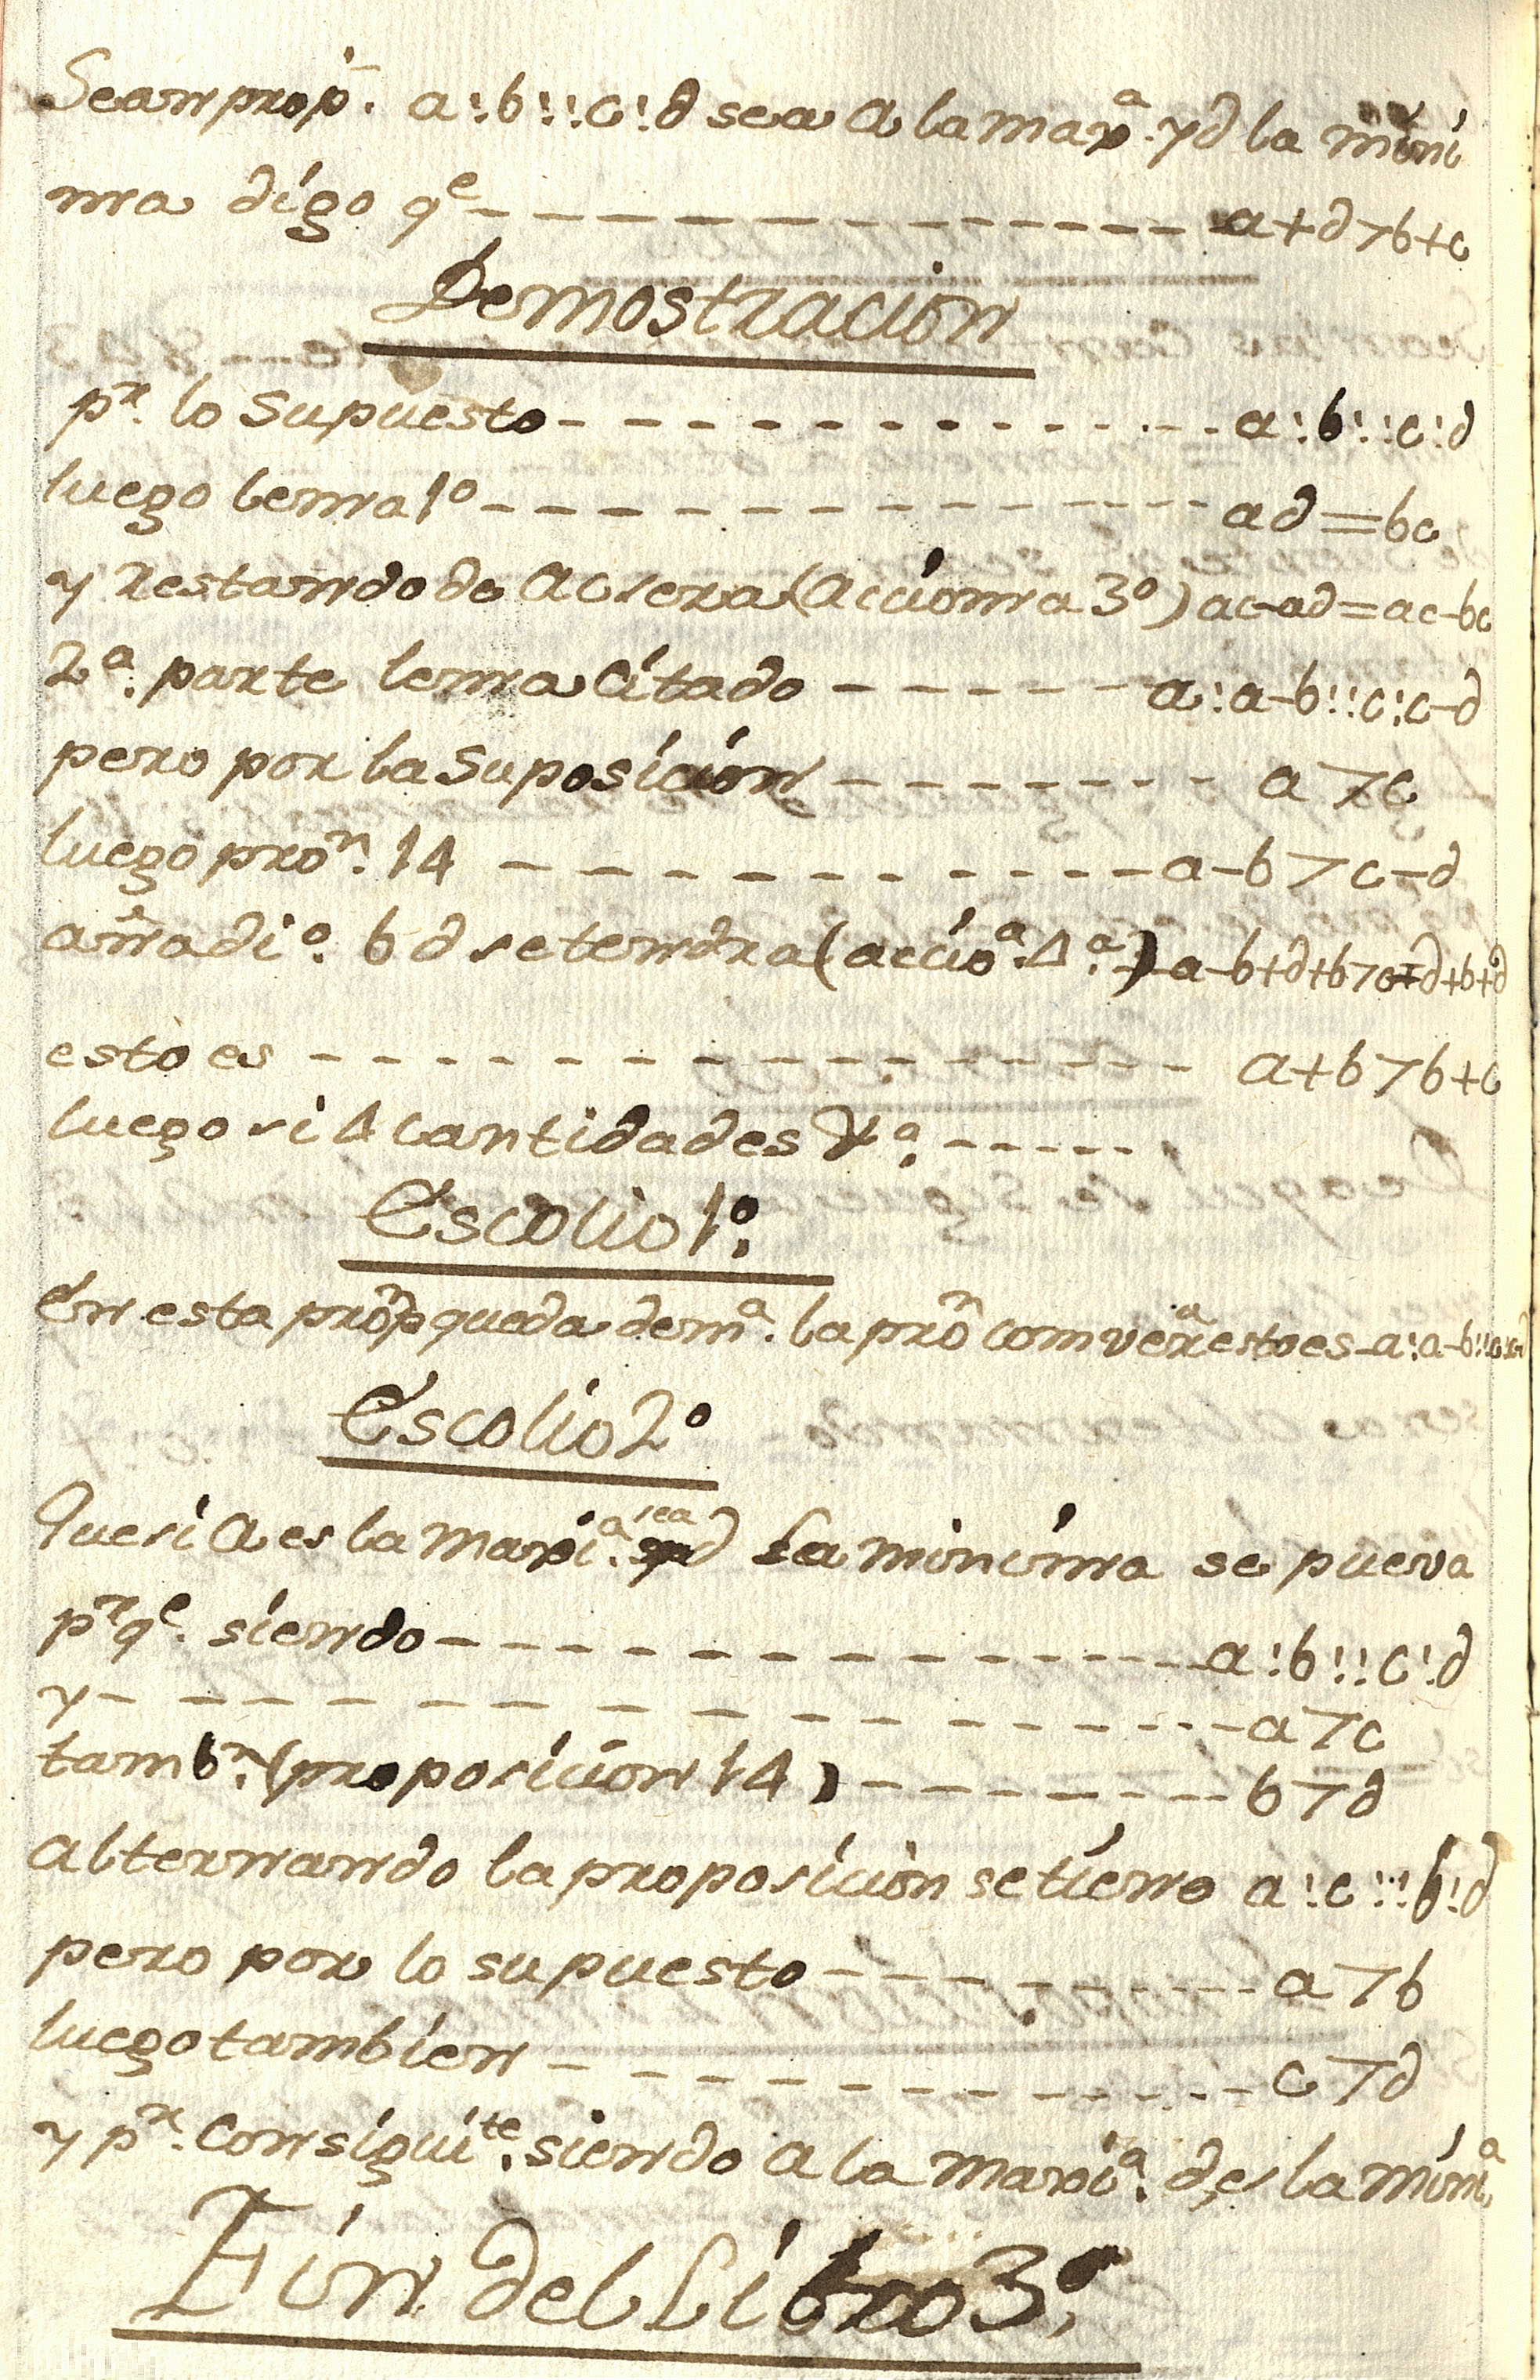 Sean prop. a:b::c:d sea a la max.ª y d la mini
ma digo q.e - - - - - - - - - - - - - a+d>b+c
Demostracion
p.r lo Supuesto - - - - - - - - - - - - a:b::c:d
luego lema 1º - - - - - - - - - - - - - ad=bc
y restando de ac sera (acsioma 3º) ac-ad=ac-bc
2ª parte lema citado - - - - - - a:a-b::c:c-d
pero por la Suposicion - - - - - - - a>c
luego pro.n 14 - - - - - - - - - - - - a-b>c-d
añadi.º b d se tendra (accio.ª 4.ª) - a-b+d+b>c-d+b+d
esto es - - - - - - - - - - - - - - - - a+b>b+c
luego si 4 cantidades &.ª - - - - -
Escolio 1º.
En esta pro.n queda dem.ª la pro.n comver.ª esto es - a:a-b::c:c-d
Escolio 2º
Que si a es la maxi.ª sea d la minima se prueva
p.r q.e siendo - - - - - - - - - - - - - a:b::c:d
y - - - - - - - - - - - - - - - - - - a>c
tamb.n (proposicion 14) - - - - - - - - b>d
alternando la proposicion se tiene a:c::b:d
pero por lo supuesto - - - - - - - - - a>b
luego tambien - - - - - - - - - - - - c>d
y p.r consigui.te siendo a la maxi.ª d, es la mini.ª
Fin del Libro 3.º